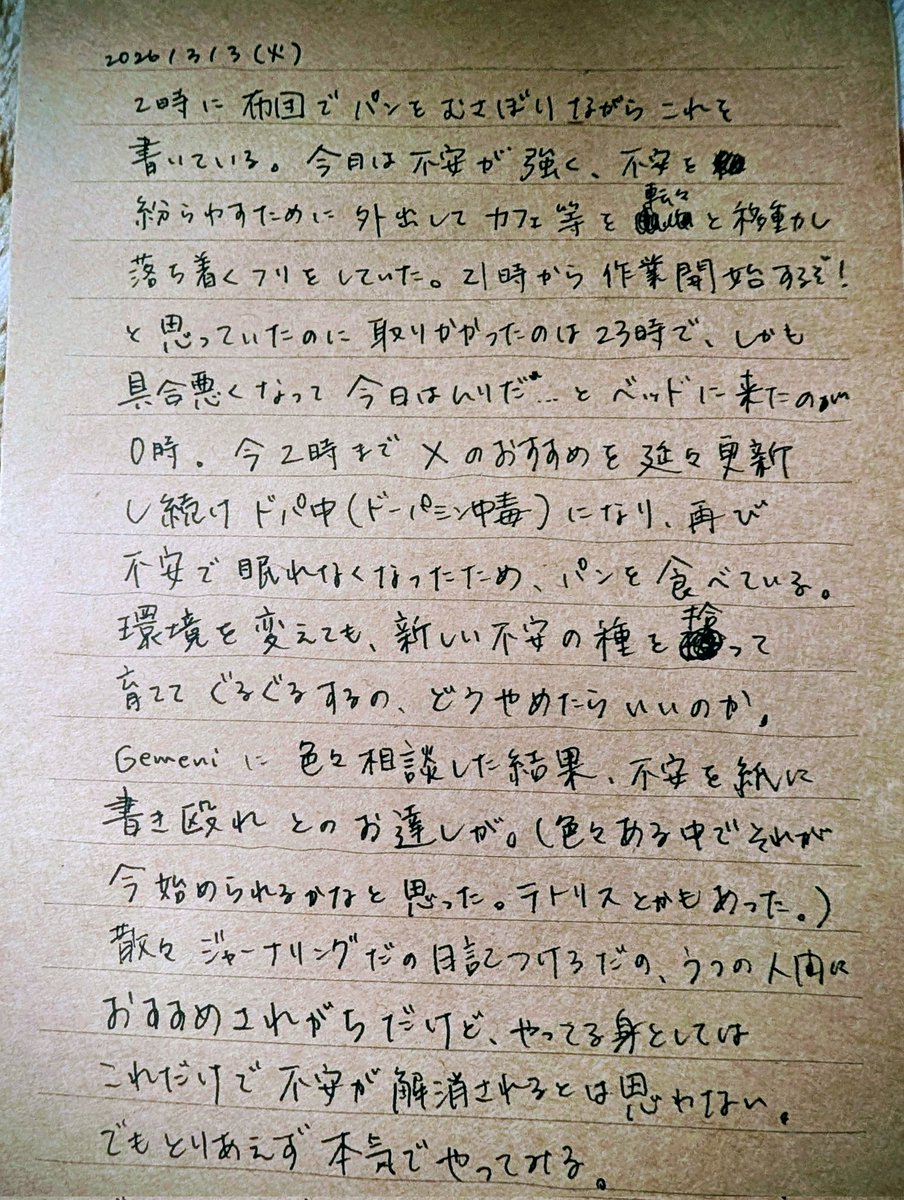 2026/3/3(火)
2時に布団でパンをむさぼりながらこれを
書いている。今日は不安が強く、不安を
紛らわすために外出してカフェ等を転々と移動し
落ち着くフリをしていた。21時から作業開始するぞ!
と思っていたのに取りかかったのは23時で、しかも
具合悪くなって今日はムリだ…とベッドに来たのが
0時。今2時までXのおすすめを延々更新
し続けドパ中(ドーパミン中毒)になり、再び
不安で眠れなくなったため、パンを食べている。
環境を変えても、新しい不安の種を拾って
育ててぐるぐるするの、どうやめたらいいのか。
Gemeniに色々相談した結果、不安を紙に
書き殴れとのお達しが。(色々ある中でそれが
今始められるかなと思った。テトリスとかもあった。)
散々ジャーナリングだの日記つけるだの、うつの人間に
おすすめされがちだけど、やってる身としては
これだけで不安が解消されるとは思わない。
でもとりあえず本気でやってみる。